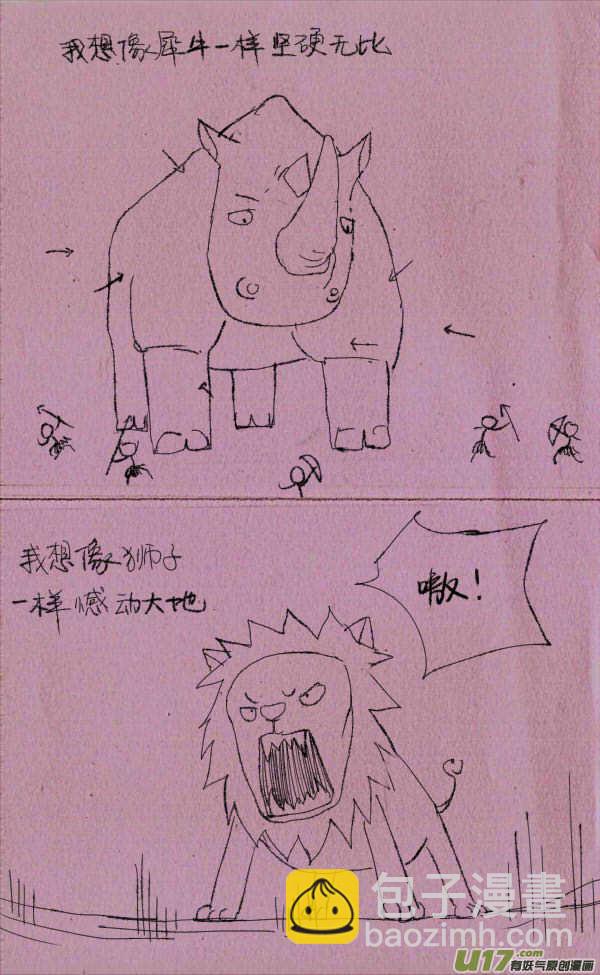 我想像犀牛一样坚硬无比
我想像狮子
一样憾动大地
嗷!
包子漫畫
baozimh.com
U17.com
有妖气原创漫画